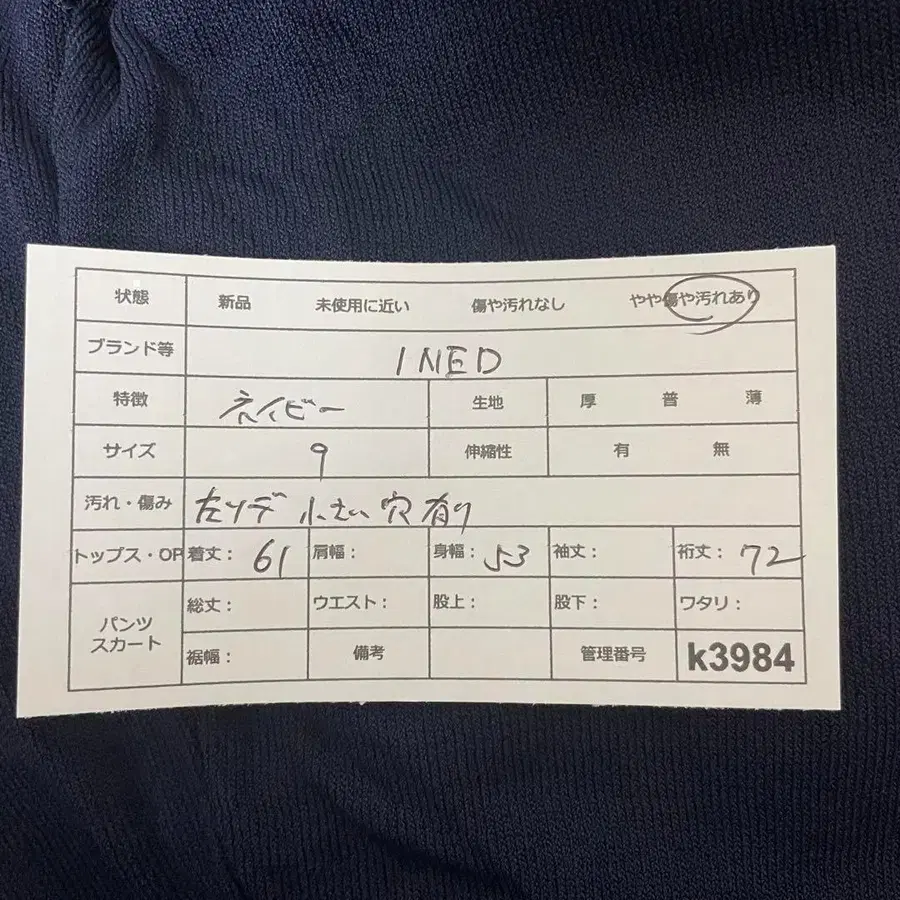 状態 新品 未使用に近い 傷や汚れなし やや傷や汚れあり
ブランド等 INED
特徴 ネイビー 生地 厚 普 薄
サイズ 9 伸縮性 有 無
汚れ・傷み 左ソデ 小さい穴有り
トップス・OP 着丈： 61 肩幅： 身幅： 53 袖丈： 裄丈： 72
パンツ スカート 総丈： ウエスト： 股上： 股下： ワタリ：
裾幅： 備考 管理番号 k3984